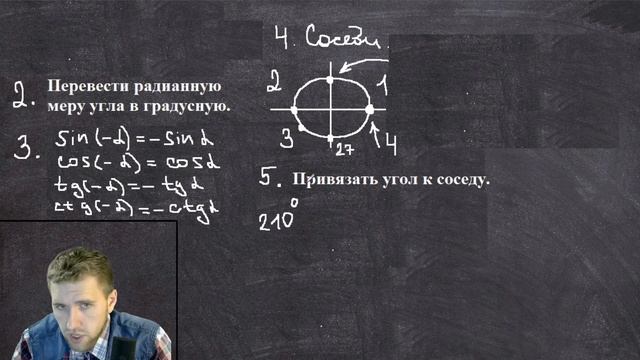 2. Перевести радианную
меру угла в градусную.
3. sin(-α) = - sin α
cos(-α) = cos α
tg(-α) = - tg α
ctg(-α) = - ctg α
4. Соседи.
2 1
3 27 4
5. Привязать угол к соседу.
210°